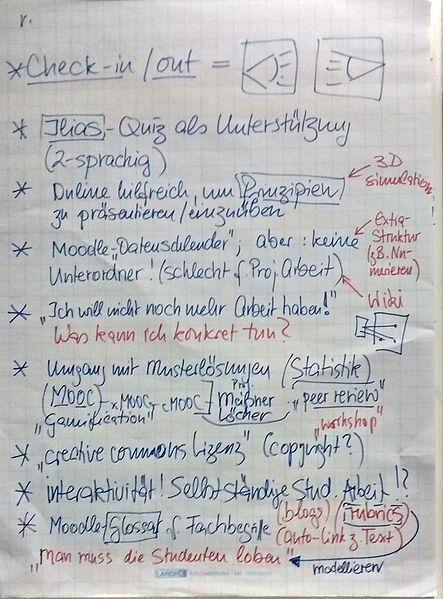 * Check-in / out =
* Ilias - Quiz als Unterstützung
(2-sprachig)
* Online hilfreich, um Prinzipien
3D Simulation
zu präsentieren / einzuüben
* Moodle „Datenschleuder"; aber: keine
Extra-Struktur (z.B. Nummerieren)
Unterordner! (schlecht f. Proj. Arbeit)
Wiki
* „Ich will nicht noch mehr Arbeit haben!"
Was kann ich konkret tun?
* Umgang mit Musterlösungen (Statistik)
(MOOC - xMOOC - cMOOC Prof. Meißner „peer review"
„Gamification" Löcher
„workshop"
* „creative commons Lizenz" (copyright?)
* interaktivität! Selbstständige Stud. Arbeit!?
(blogs) (rubrics)
* Moodle Glossar f. Fachbegriffe (auto-link z. Text)
„Man muss die Studenten loben"
modellieren